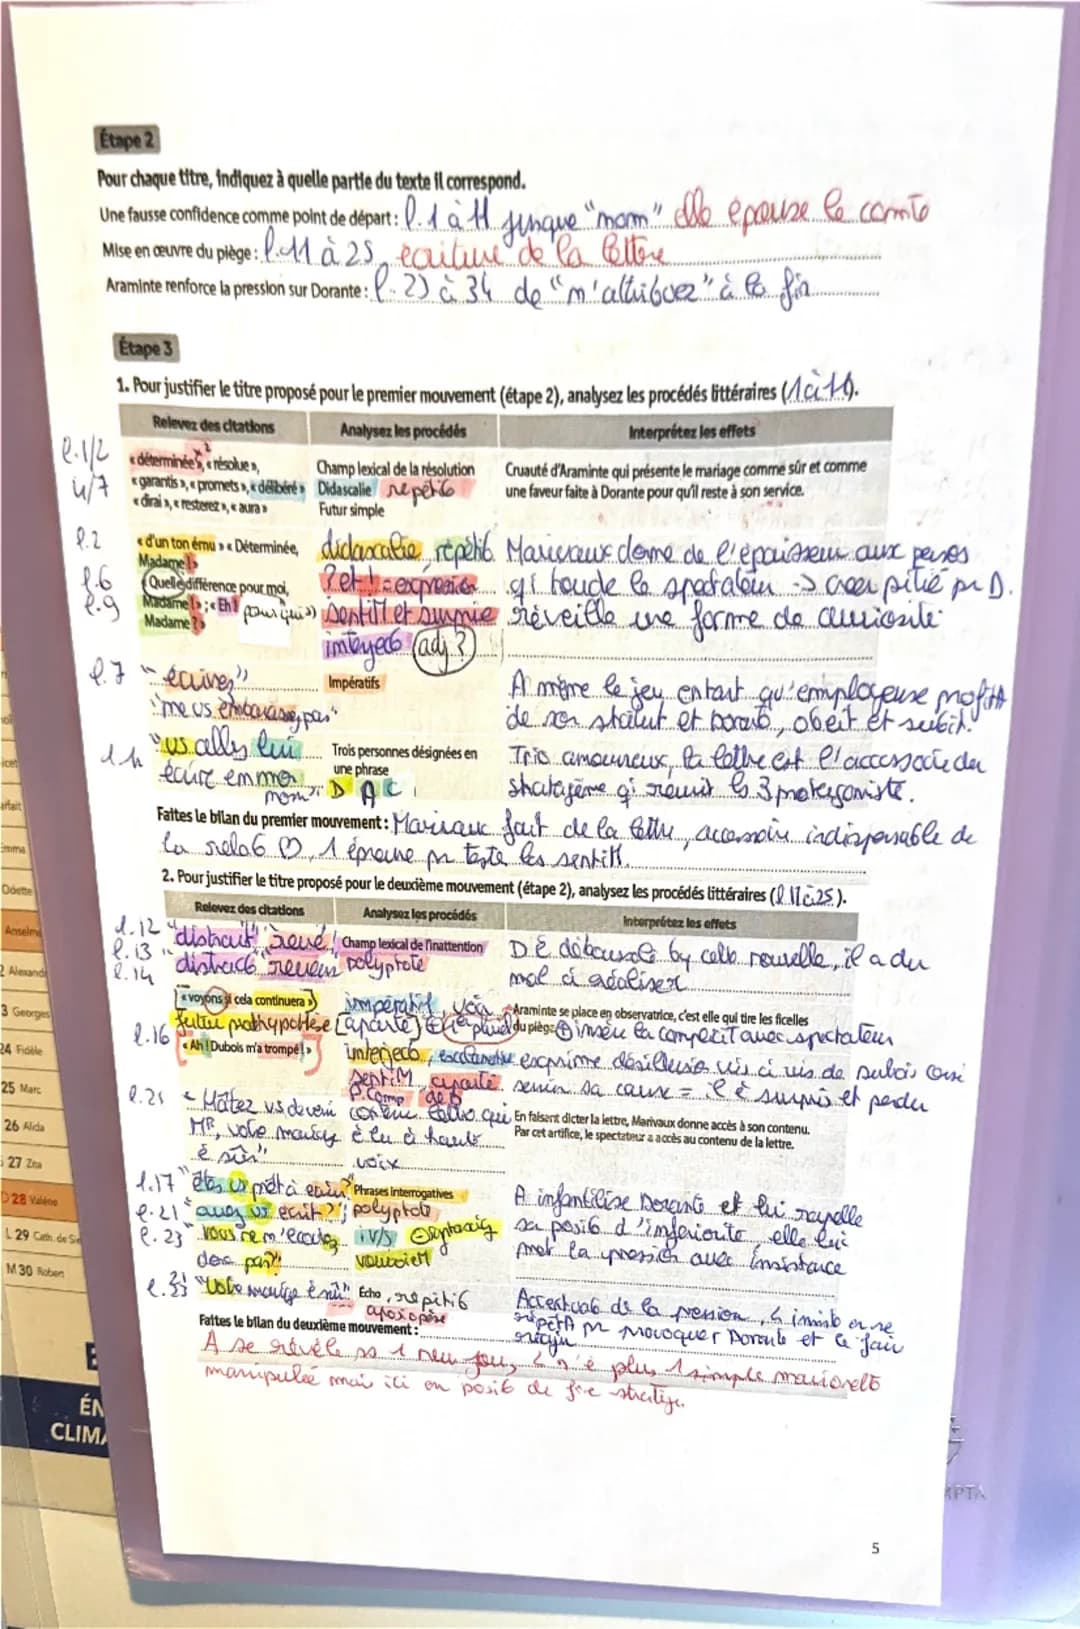 Étape 2
Pour chaque titre, indiquez à quelle partie du texte il correspond.
Une fausse confidence comme point de départ : l. 1 à 11 jusque "mom" elle épouse le comte
Mise en œuvre du piège : l. 11 à 25, écriture de la lettre
Araminte renforce la pression sur Dorante : l. 25 à 34 de "m'attribuez" à la fin
Étape 3
1. Pour justifier le titre proposé pour le premier mouvement (étape 2), analysez les procédés littéraires (1 à 11).
Relevez des citations Analysez les procédés Interprétez les effets
l. 1/2 « déterminée », « résolue », Champ lexical de la résolution Cruauté d'Araminte qui présente le mariage comme sûr et comme
4/7 « garantis », « promets », « délibéré » Didascalie répét° une faveur faite à Dorante pour qu'il reste à son service.
« dirai », « resterez », « aura » Futur simple
l. 2 « d'un ton ému » « Déterminée, didascalie, répétit° Marivaux donne de l'épaisseur aux persos
Madame ! »
l. 6 « Quelle différence pour moi, ? et ! = expression qi touche le spectateur -> créer pitié pr D.
l. 9 Madame ! » ; « Eh ! pourquoi » sentiM et surprise réveille une forme de curiosité
Madame ? »
interject° (adj ?)
l. 7 "écrivez" Impératifs A mène le jeu en tant qu'employeuse profit
de son statut et Dorante, obéit et subit.
"vs allez lui Trois personnes désignées en Trio amoureux, la lettre est l'accessoire du
écrire en mon une phrase stratagème qi réunit les 3 protagoniste.
nom" D A C
Faites le bilan du premier mouvement : Marivaux fait de la lettre, accessoire indispensable de
la relat° ♡, 1 épreuve pr tester les sentiM.
2. Pour justifier le titre proposé pour le deuxième mouvement (étape 2), analysez les procédés littéraires (l. 11 à 25).
Relevez des citations Analysez les procédés Interprétez les effets
l. 12 "distrait" "rêve" Champ lexical de l'inattention D è déboussolé by cette nouvelle, il a du
l. 13 "distract° rêveur" polyptote mal à réaliser
l. 14
« voyons si cela continuera » impératif, voir Araminte se place en observatrice, c'est elle qui tire les ficelles
futur (aparté) ⊕ 1e pluriel du piège ⊕ insère la complicité avec spectateur
l. 16 « Ah ! Dubois m'a trompé ! » interject°, exclamative exprime désillusion vis à vis de Dubois
sentiM, aparté = il è surpris et perdu
l. 21 "Hâtez vs de venir contenu lettre qui En faisant dicter la lettre, Marivaux donne accès à son contenu.
Mr, votre mariage è lu à haute Par cet artifice, le spectateur a accès au contenu de la lettre.
è sûr" voix
l. 17 "êtes vs prêt à écrire ?" Phrases interrogatives A infantilise Dorante et lui rappelle
l. 21 "avez vs écrit ?" ; polyptote sa posit° d'infériorité, elle lui
l. 23 "vous ne m'écoutez i v/s met la pression avec insistance
donc pas ?" vouvoieM
l. 23 "Votre mariage è sûr" Écho, répétit° Accentuat° de la pression,
aposiopèse répétM pr provoquer Dorante et le faire
réagir
Faites le bilan du deuxième mouvement :
A se révèle ss 1 new jour, n'è plus 1 simple marionette
manipulée mais ici en posit° de fine stratège.
Emma
Odette
Anselme
3 Georges
24 Fidèle
25 Marc
26 Alida
27 Zita
D 28 Valérie
L 29 Cath. de Sie
M 30 Robert
ÉN
CLIMA
5